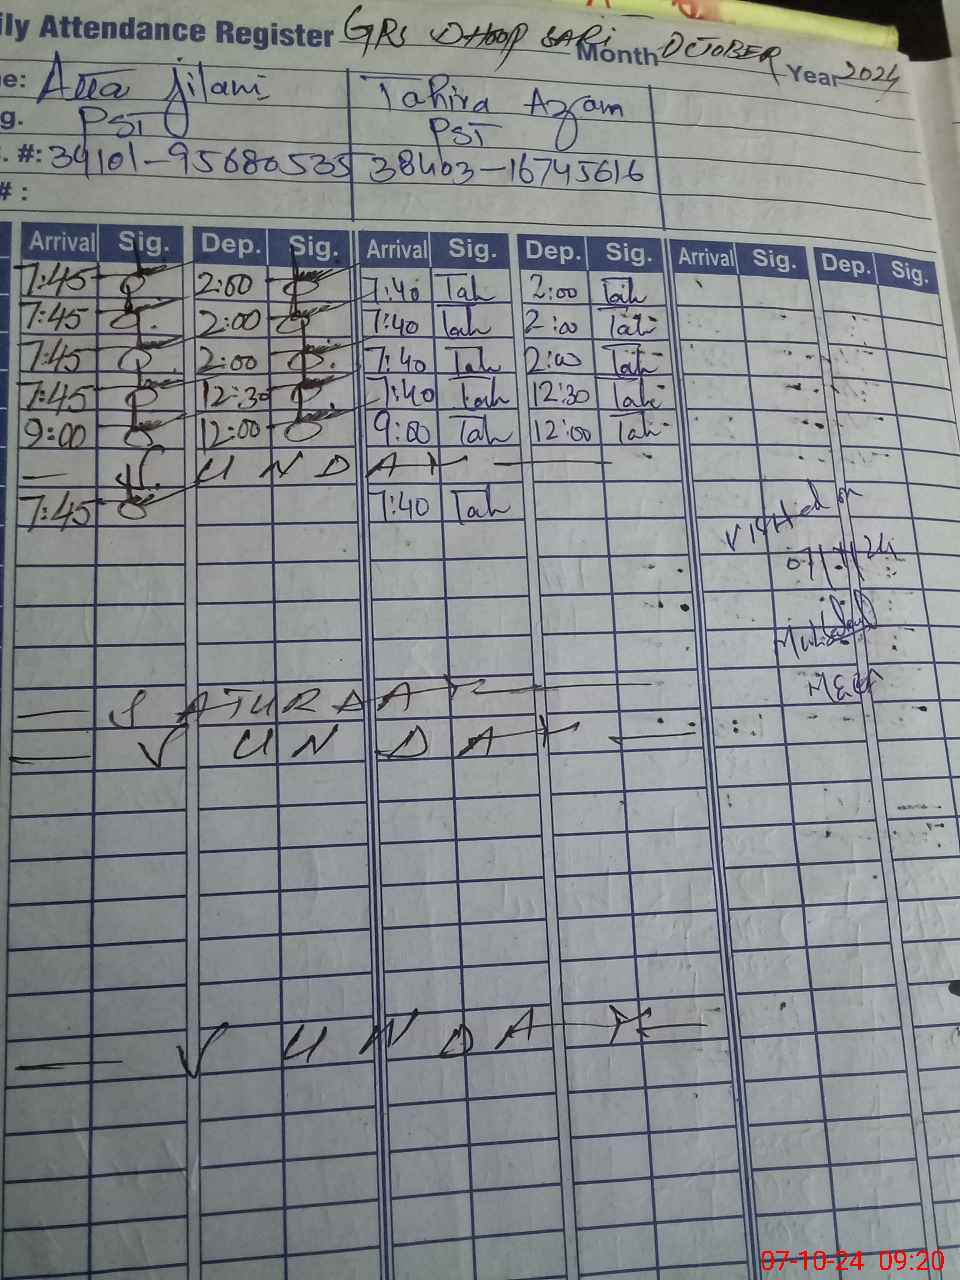 ily Attendance Register GRS DHOOP SARI Month OCTOBER Year 2024
e: Atta Jilani Tahira Azam
g. PST PST
. #: 34101-95680535 38403-16745616
# :
Arrival Sig. Dep. Sig. Arrival Sig. Dep. Sig. Arrival Sig. Dep. Sig.
7:45 2:00 7:40 Tah 2:00 Tah
7:45 2:00 7:40 Tah 2:00 Tah
7:45 2:00 7:40 Tah 2:00 Tah
7:45 12:30 7:40 Tah 12:30 Tah
9:00 12:00 9:00 Tah 12:00 Tah
— S U N D A Y —
7:45 7:40 Tah
Visited on
— S A T U R D A Y —
— S U N D A Y —
— S U N D A Y —
07-10-24 09:20